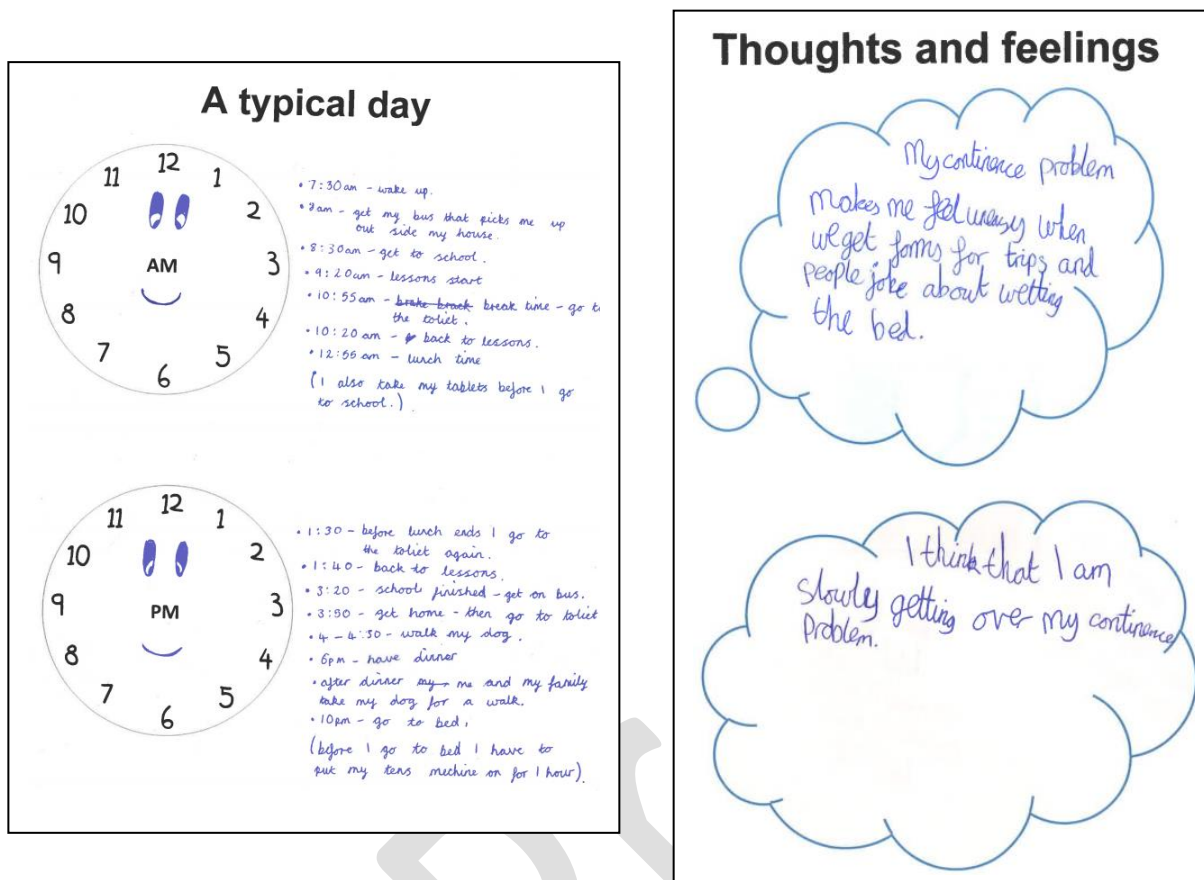 A typical day
12
11
1
10
2
9
AM
3
8
4
7
5
6
• 7:30am - wake up.
• 8am - get my bus that picks me up
out side my house.
• 8:30am - get to school.
• 9:20am - lessons start
• 10:55am - brake brack break time - go t
the toliet.
• 10:20 am - back to lessons.
• 12:55 am - lunch time
(I also take my tablets before I go
to school.)
12
11
1
10
2
9
PM
3
8
4
7
5
6
• 1:30 - before lunch ends I go to
the toliet again.
• 1:40 - back to lessons.
• 3:20 - school finished - get on bus.
• 3:50 - get home - then go to toliet
• 4 - 4:30 - walk my dog.
• 6pm - have dinner
• after dinner my me and my family
take my dog for a walk.
• 10pm - go to bed.
(before I go to bed I have to
put my tens mechine on for 1 hour).
Thoughts and feelings
My continence problem
makes me feel uneasy when
we get forms for trips and
people joke about wetting
the bed.
I think that I am
slowly getting over my continence
Problem.